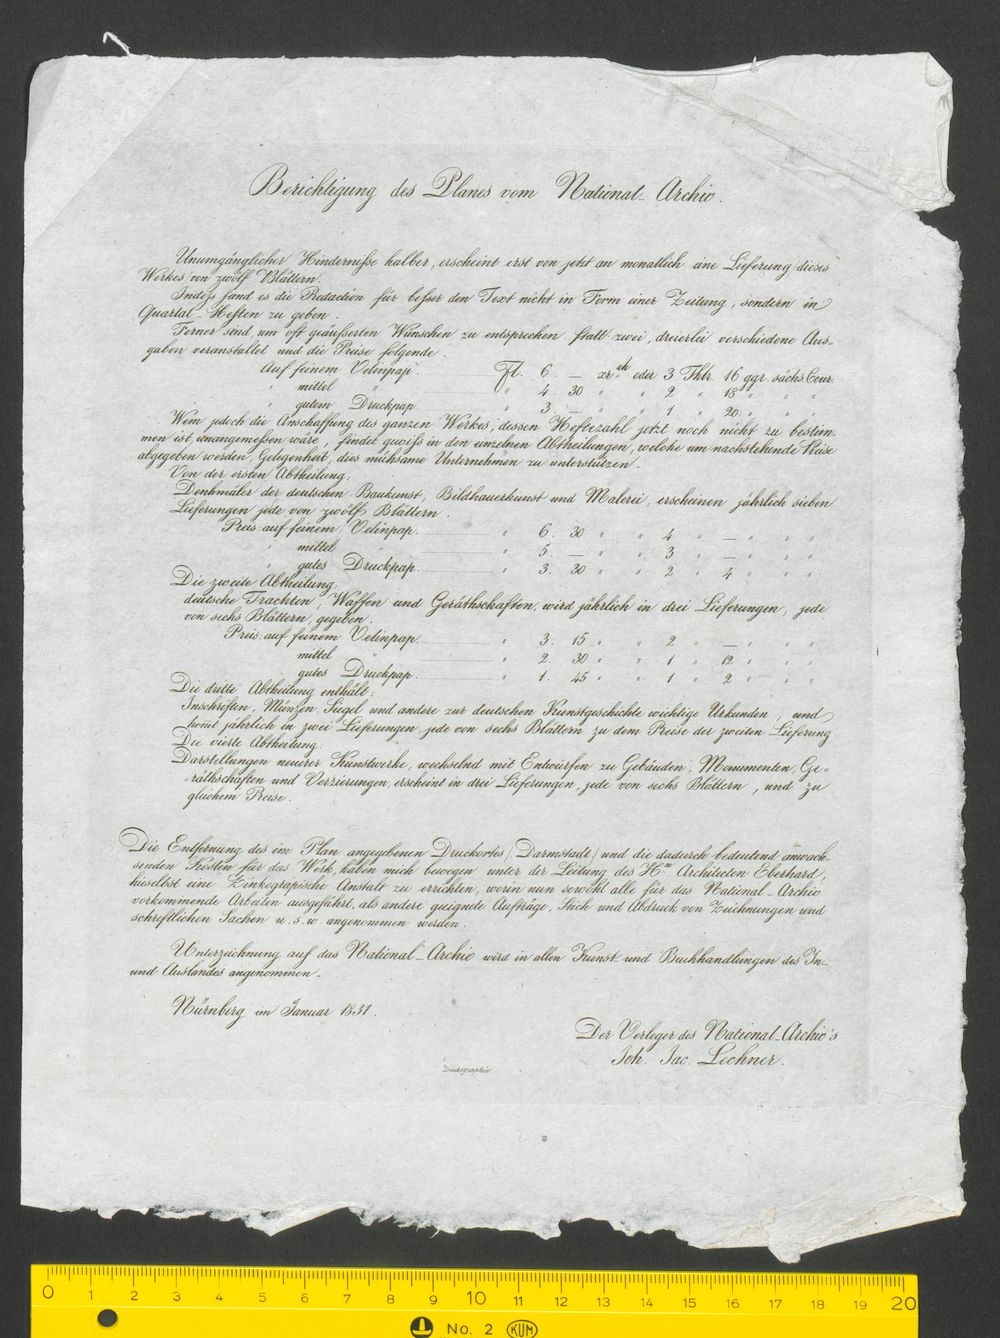 Berichtigung des Planes vom National-Archiv.
Unumgänglicher Hinderniße halber, erscheint erst von jetzt an monatlich eine Lieferung dieses
Werkes von zwölf Blättern.
Indeß fand es die Redaction für beßer den Text nicht in Form einer Zeitung, sondern in
Quartal-Heften zu geben.
Ferner sind um oft geäußerten Wünschen zu entsprechen statt zwei, dreierlei verschiedene Aus-
gaben veranstaltet und die Preise folgende.
Auf feinem Velinpap. Fl. 6. — xr oder 3 Thlr. 16 ggr. sächs. Cour.
" mittel " " 4. 30 " " 2 " 18 " " "
" gutem Druckpap. " 3. — " " 1 " 20 " " "
Wem jedoch die Anschaffung des ganzen Werkes, dessen Heftezahl jetzt noch nicht zu bestim-
men ist unangemeßen wäre, findet gewiß in den einzelnen Abtheilungen, welche um nachstehende Preise
abgegeben werden, Gelegenheit, dies mühsame Unternehmen zu unterstützen.
Von der ersten Abtheilung:
Denkmäler der deutschen Baukunst, Bildhauerkunst und Malerei, erscheinen jährlich sieben
Lieferungen jede von zwölf Blättern.
Preis: auf feinem Velinpap. " 6. 30 " " 4 " — " " "
" mittel " " 5. — " " 3 " — " " "
" gutes Druckpap. " 3. 30 " " 2 " 4 " " "
Die zweite Abtheilung:
deutsche Trachten, Waffen und Geräthschaften, wird jährlich in drei Lieferungen, jede
von sechs Blättern, gegeben.
Preis: auf feinem Velinpap. " 3. 15 " " 2 " — " " "
mittel " " 2. 30 " " 1 " 12 " " "
gutes Druckpap. " 1. 45 " " 1 " 2 " " "
Die dritte Abtheilung enthält:
Inschriften, Münzen, Siegel und andere zur deutschen Kunstgeschichte wichtige Urkunden, und
kom̅t jährlich in zwei Lieferungen, jede von sechs Blättern zu dem Preise der zweiten Lieferung
Die vierte Abtheilung:
Darstellungen neuerer Kunstwerke, wechselnd mit Entwürfen zu Gebäuden, Monumenten, Ge-
räthschaften und Verzierungen, erscheint in drei Lieferungen, jede von sechs Blättern, und zu
gleichem Preise.
Die Entfernung des im Plan angegebenen Druckortes (Darmstadt) und die dadurch bedeutend anwach-
senden Kosten für das Werk, haben mich bewogen unter der Leitung des Hrn Architecten Eberhard,
hieselbst eine Zinkographische Anstalt zu errichten, worin nun sowohl alle für das National-Archiv
vorkommende Arbeiten ausgeführt, als andere geeignete Aufträge, Stich und Abdruck von Zeichnungen und
schriftlichen Sachen u. s. w. angenommen werden.
Unterzeichnung auf das National-Archiv wird in allen Kunst und Buchhandlungen des In-
und Auslandes angenommen.
Nürnberg im Januar 1831.
Der Verleger des National-Archiv's
Joh. Jac. Lechner.
Zinkographie
0 1 2 3 4 5 6 7 8 9 10 11 12 13 14 15 16 17 18 19 20
No. 2 KUM